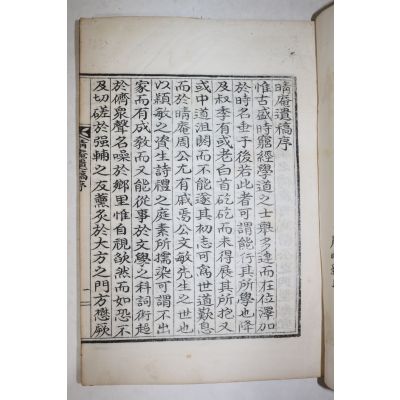 晴庵遺稿序
惟古盛時窮經學道之士擧多達而在位澤加
於時名垂于後若此者可謂能行其所學也降
及叔季有或老白首矻矻而未得展其所抱又
或中道沮閼而不能遂其初志可寓世道歎息
而於晴庵周公尤有戚焉公文敏先生之世也
以穎敏之資生詩禮之庭素所擩染可謂不出
家而有成敎而又能從事於文學之科詞術超
於儕衆聲名噪於鄕里惟自視欿然而如恐不
及切磋於强輔之友薰炙於大方之門方懋厥
晴庵遺稿序
一